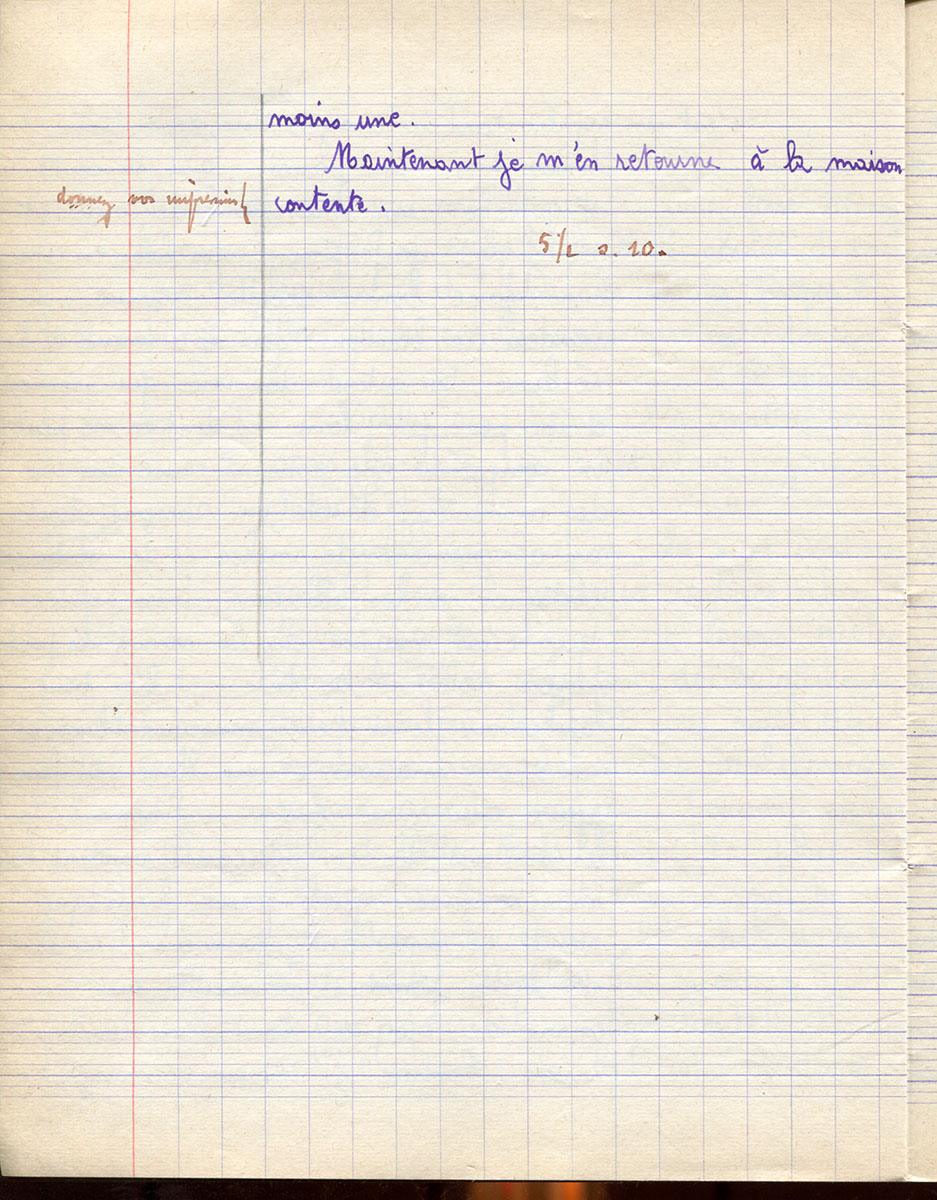 moins une.
Maintenant je m'en retourne à la maison
donnez vos impressions
contente.
5 1/2 s. 10.